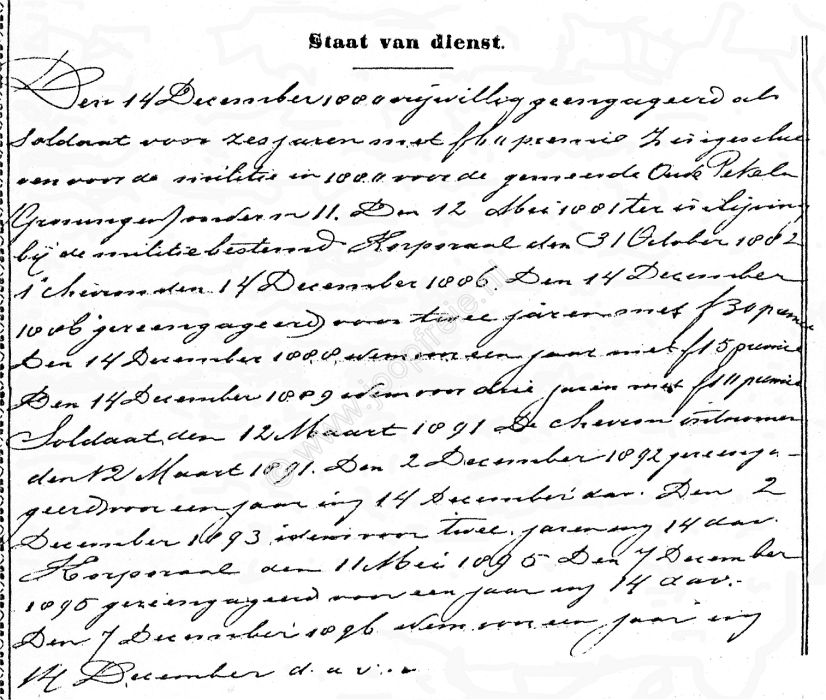 Staat van dienst.
Den 14 December 1880 vrijwillig geengageerd als
Soldaat voor zes jaren met premie Ingeschre
ven voor de militie in 1880 voor de gemeente Oude Pekela
(Groningen) onder n 11. Den 12 Mei 1881 ter inlijving
bij de militie bestemd Korporaal den 31 October 1882
1e chevron den 14 December 1886. Den 14 December
1886 gereengageerd voor twee jaren met f 30 premie
Den 14 December 1888 idem voor een jaar met f 15 premie
Den 14 December 1889 idem voor drie jaren met premie
Soldaat den 12 Maart 1891 De chevron ontnomen
den 12 Maart 1891. Den 2 December 1892 gereenga-
geerd voor een jaar ing 14 December dav. Den 2
December 1893 idem voor twee jaren ing 14 dav.
Korporaal den 11 Mei 1895 Den 7 December
1895 gereengageerd voor een jaar ing 14 dav.
Den 7 December 1896 idem voor een jaar ing
14 December d.a.v.
© www.joopfroje.nl